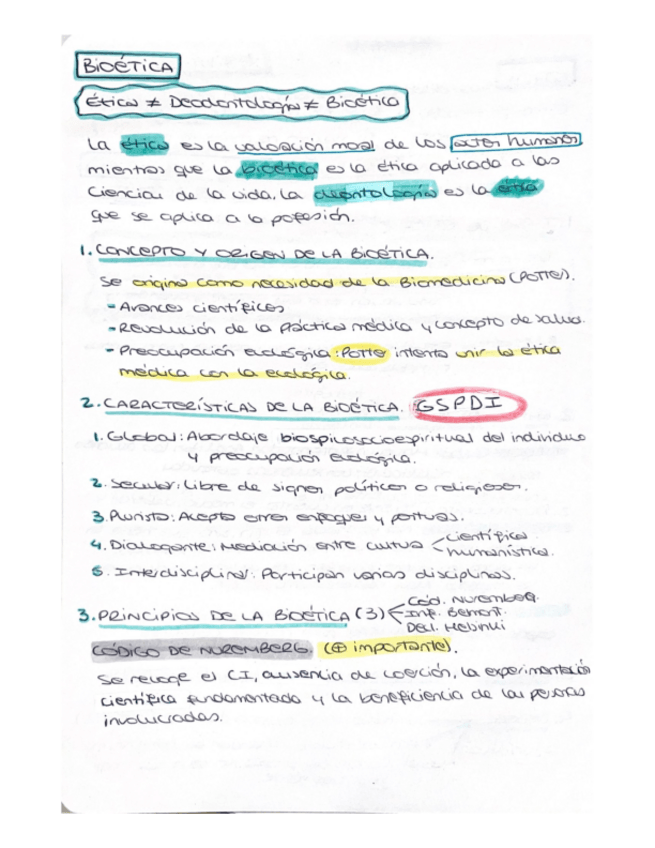 BIOÉTICA
Ética ≠ Deodontología ≠ Bioética
La ética es la valoación moral de los actos humanos
mientras que la bioética es la ética aplicada a las
Ciencias de la vida. La deontología es la ética
que se aplica a la pofesión.
1. CONCEPTO Y ORIGEN DE LA BIOÉTICA.
Se origina como necesidad de la Biomedicina (POTTER).
- Avances científicos
- Revolución de la práctica médica y concepto de salud.
- Preocupación ecológica: Potter intenta unir la ética
médica con la ecológica.
2. CARACTERÍSTICAS DE LA BIOÉTICA. GSPDI
1. Global: Abordaje biospicosocioespiritual del individuo
y preocupación ecológica.
2. Secular: Libre de signos políticos o religiosos.
3. Pluralista: Acepta otros enfoques y posturas.
4. Dialogante: Mediación entre cultura científica humanística.
5. Interdisciplinar: Participan varias disciplinas.
3. PRINCIPIOS DE LA BIOÉTICA (3) Cód. Nuremberg. Inf. Belmont. Decl. Helsinki
CÓDIGO DE NUREMBERG (⊕ importante).
Se recoge el CI, ausencia de coerción, la experimentación
científica fundamentada y la beneficiencia de las personas
involucradas.